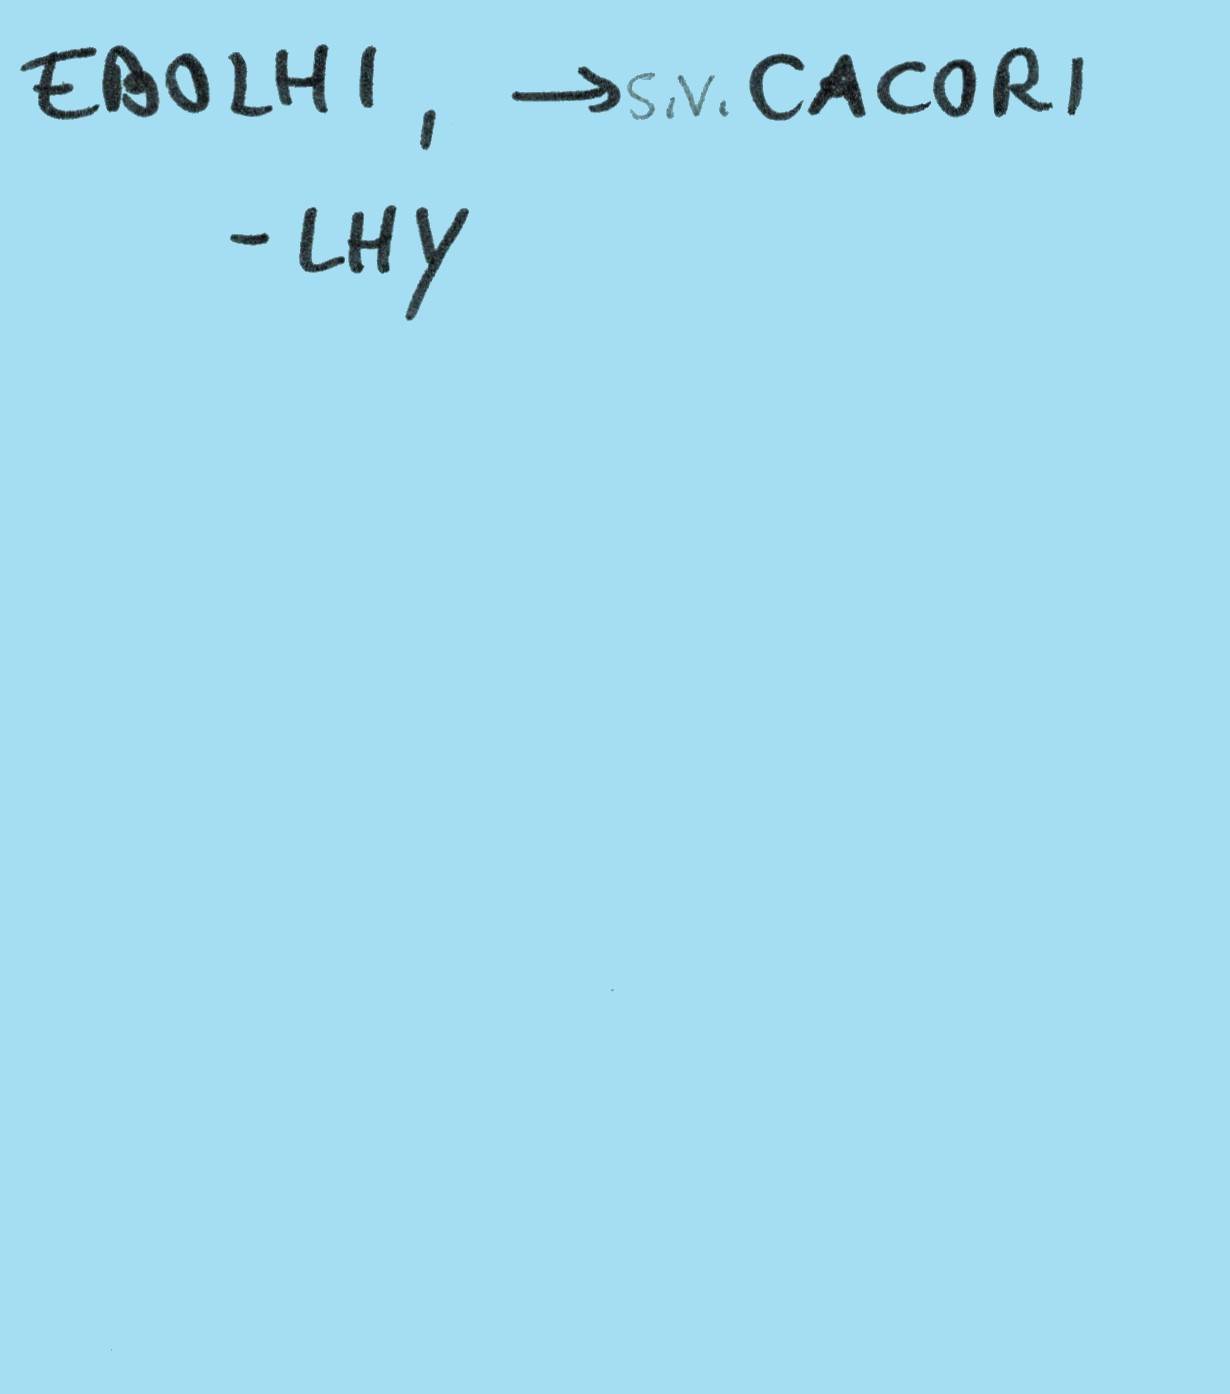 EBOLHI, → s.v. CACORI
-LHY